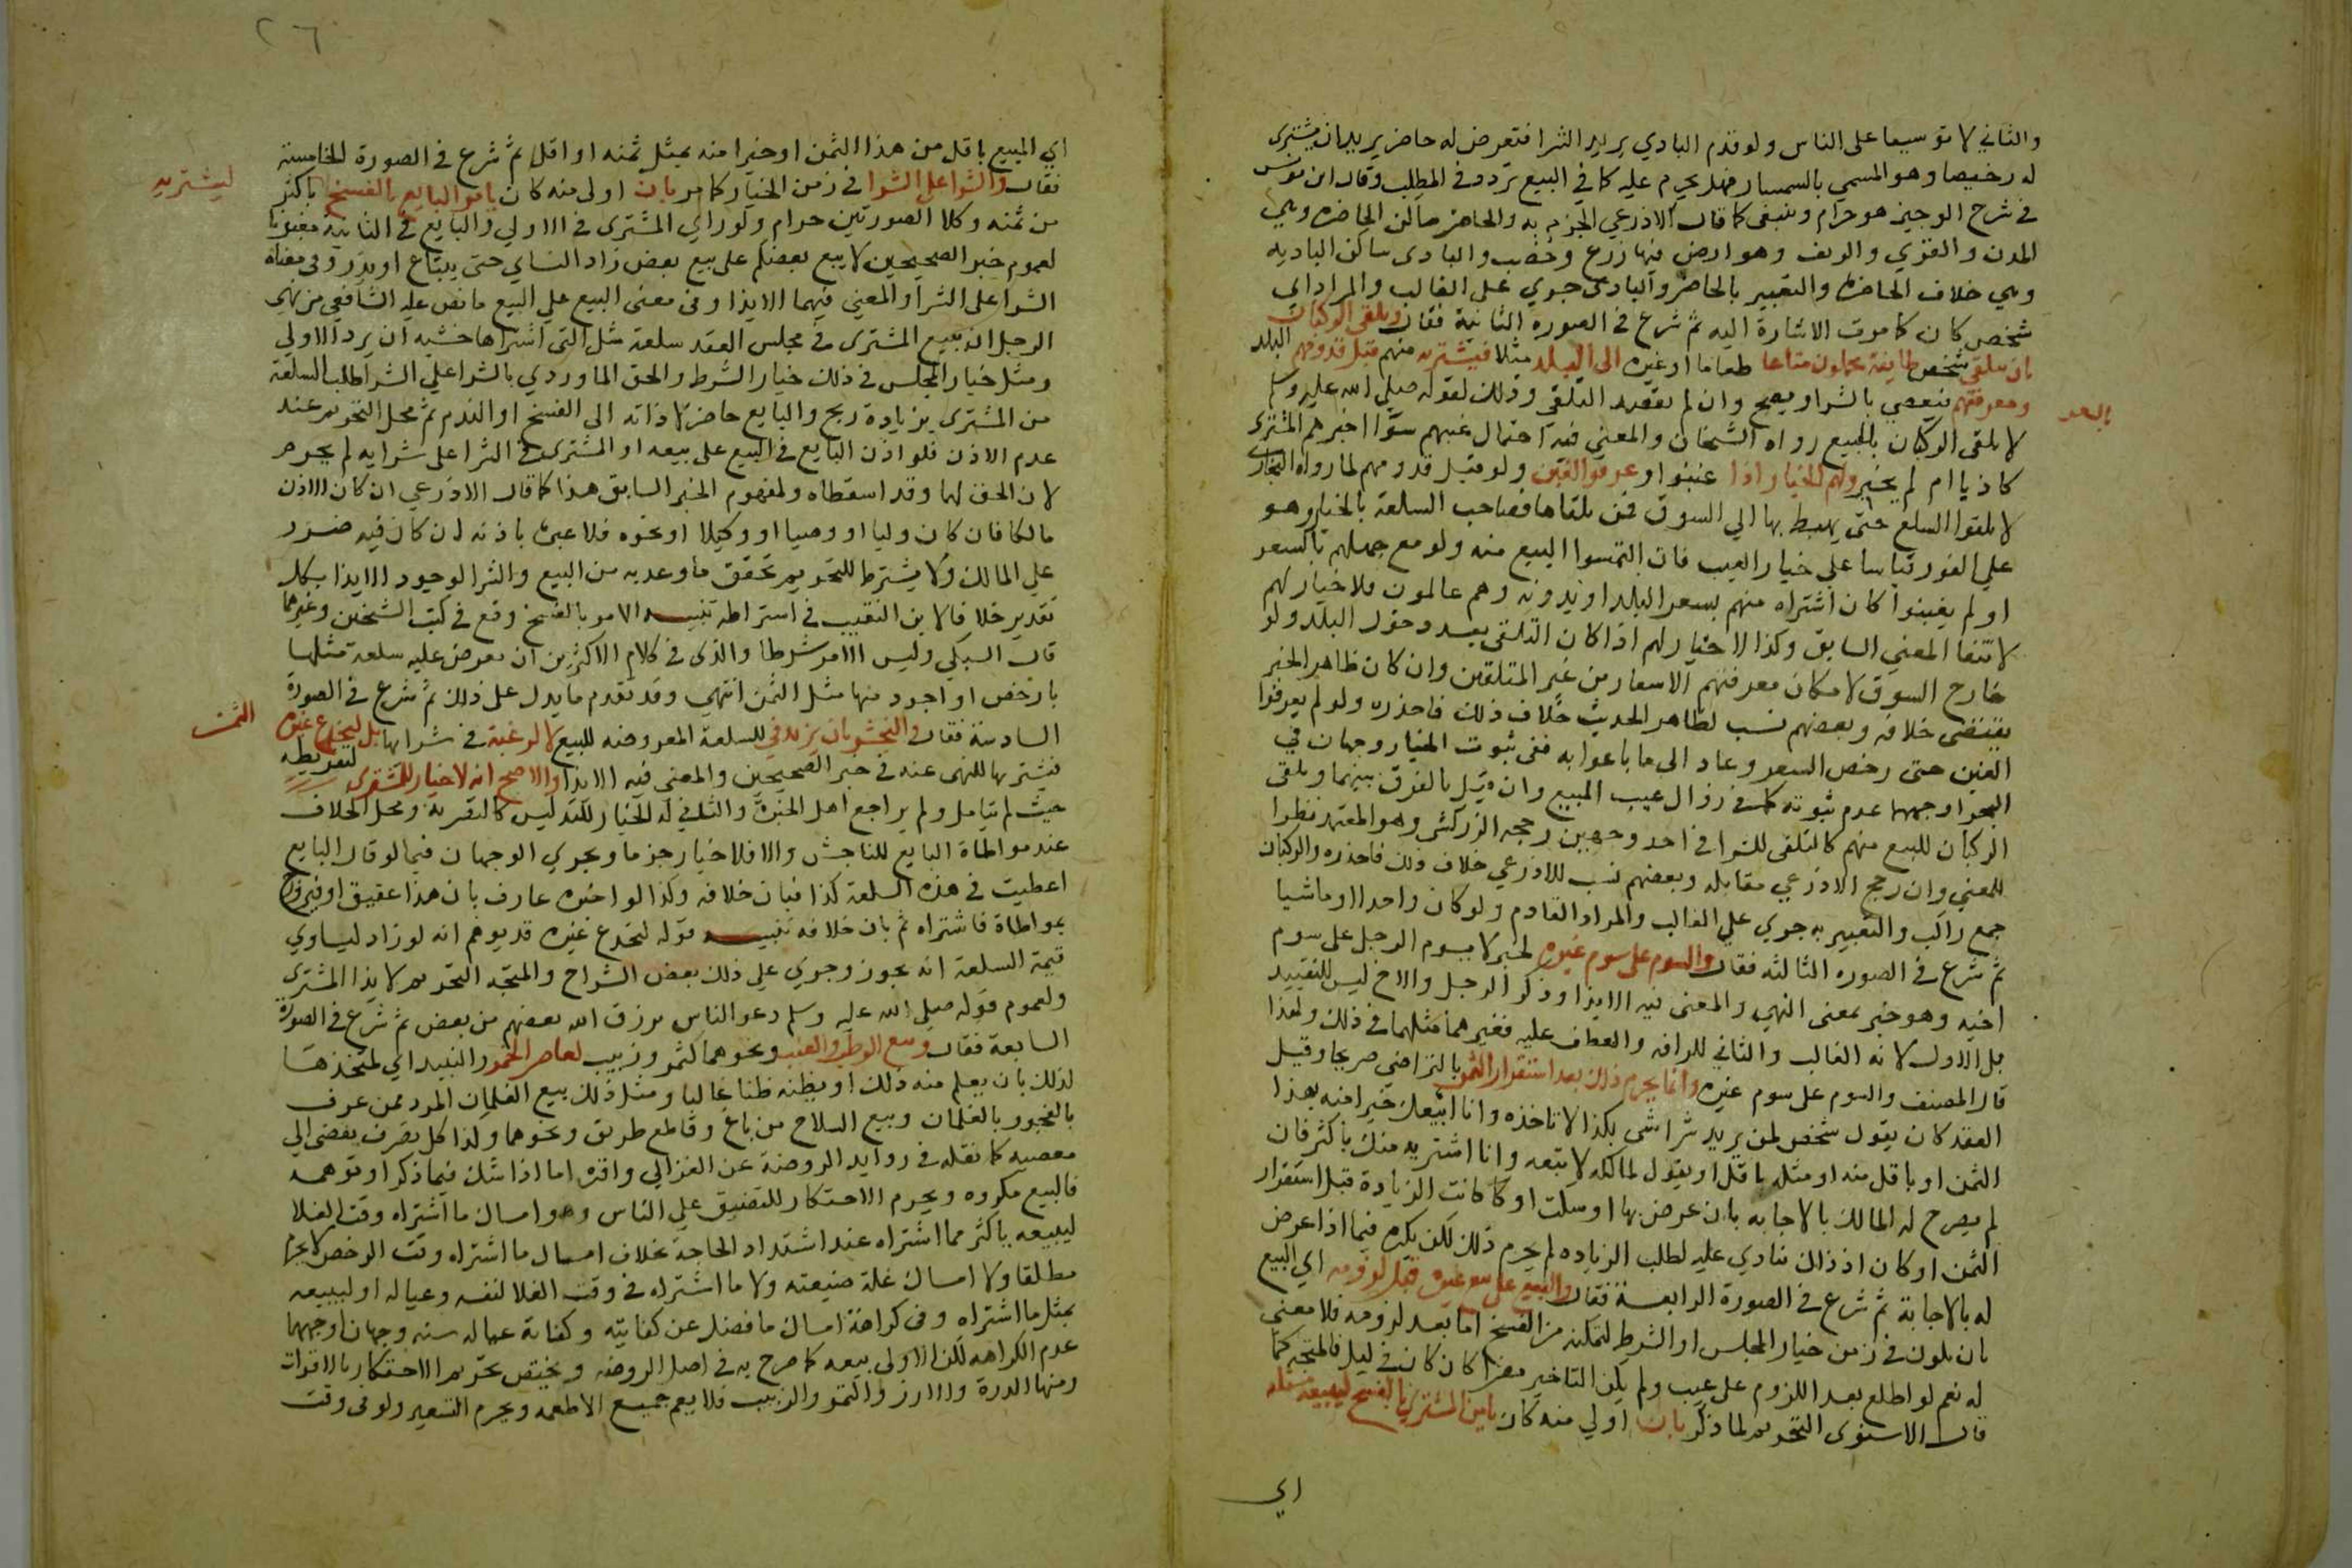 والثاني لا توسيعا على الناس ولو قدم البادي يريد الشرا فتعرض له حاضر يريد ان يشترى
له رخيصا وهو المسمي بالسمسار فهل يحرم عليه كما في البيع تردد في المطلب وقال ابن يونس
في شرح الوجيز هو حرام وينبغي كما قال الاذرعي الجزم به والحاضر ساكن الحاضره وهي
المدن والقري والريف وهو ارض فيها زرع وخصب والبادى ساكن الباديه
وهي خلاف الحاضرة والتعبير بالحاضر والبادى جري على الغالب والمراد اي
شخص كان كما مرت الاشارة اليه ثم شرع في الصوره الثانية فقال وتلقى الركبان
بان يتلقى شخص طايفة يحملون متاعا طعاما او غيره الى البلد مثلا فيشتريه منهم قبل قدومهم البلد
ومعرفتهم فيعصي بالشرا ويصح وان لم يقصد التلقي وذلك لقوله صلى الله عليه وسلم
لا تلقى الركبان بالبيع رواه الشيخان والمعني فيه احتمال غبنهم سوا اخبرهم المشترى
كاذبا ام لم يخبر ولهم الخيار اذا غبنوا وعرفوا الغبن ولو قبل قدومهم لما رواه البخاري
لا تلقوا السلع حتى يهبط بها الي السوق فمن تلقاها فصاحب السلعة بالخيار وهو
علي الفور قياسا علي خيار العيب فان التمسوا البيع منه ولو مع جهلهم بالسعر
او لم يغبنوا كان اشتراه منهم بسعر البلد او بدونه وهم عالمون فلا خيار لهم
لانتفا المعني السابق وكذا لا خيار لهم اذا كان التلقى بعد دخول البلد ولو
خارج السوق لامكان معرفتهم الاسعار من غير المتلقين وان كان ظاهر الخبر
يقتضي خلافه وبعضهم نسب لظاهر الحديث خلاف ذلك فاحذره ولو لم يعرفوا
الغبن حتى رخص السعر وعاد الى ما باعوا به ففي ثبوت الخيار وجهان في
البحر اوجههما عدم ثبوته كما في زوال عيب المبيع وان قيل بالفرق بينهما وتلقى
الركبان للبيع منهم كالتلقى للشرا في احد وجهين رجحه الزركشي وهو المعتمد نظرا
للمعني وان رجح الاذرعي مقابله وبعضهم نسب للاذرعي خلاف ذلك فاحذره والركبان
جمع راكب والتعبير به جري علي الغالب والمراد القادم ولو كان واحدا او ماشيا
ثم شرع في الصوره الثالثه فقال والسوم على سوم غيره لخبر لا يسوم الرجل على سوم
اخيه وهو خبر بمعنى النهي والمعنى فيه الايذا وذكر الرجل والاخ ليس للتقييد
بل الاول لانه الغالب والثاني للرافه والعطف عليه فغيرهما مثلهما في ذلك ولهذا
قال المصنف والسوم على سوم غيره وانما يحرم ذلك بعد استقرار الثمن بالتراضي صريحا وقبل
العقد كان يقول شخص لمن يريد شرا شي بكذا لا تاخذه وانا ابيعك خيرا منه بهذا
الثمن او باقل منه او مثله باقل او يقول لمالكه لا تبعه وانا اشتريه منك باكثر فان
لم يصرح له المالك بالاجابه بان عرض بها او سكت او كانت الزيادة قبل استقرار
الثمن او كان اذ ذاك ينادي عليه لطلب الزياده لم يحرم ذلك لكن يكره فيما اذا عرض
له بالاجابة ثم شرع في الصورة الرابعة فقال والبيع على بيع غيره قبل لزومه اي البيع
بان يكون في زمن خيار المجلس او الشرط لتمكنه من الفسخ اما بعد لزومه فلا معنى
له نعم لو اطلع بعد اللزوم على عيب ولم يكن التاخير مضرا كان كان في ليل فالمتجه كما
قال الاسنوى التحريم لما ذكر بان اولي منه كان يامر المشترى بالفسخ ليبيعه مثله
اي
بالسعر
٢٦
اي المبيع باقل من هذا الثمن او خيرا منه بمثل ثمنه او اقل ثم شرع في الصورة الخامسة
فقال والشرا على الشرا في زمن الخيار كما مر بان اولى منه كان يامر البايع بالفسخ باكثر
ليشتريه
من ثمنه وكلا الصورتين حرام ولو راي المشترى في الاولي والبايع في الثانية مغبونا
لعموم خبر الصحيحين لا يبع بعضكم على بيع بعض زاد النساي حتى يبتاع او يذر وفي معناه
الشرا على الشرا والمعني فيهما الايذا وفي معنى البيع علي البيع ما نص عليه الشافعي من نهي
الرجل ان يبيع المشترى في مجلس العقد سلعة مثل التى اشتراها خشيه ان يرد الاولي
ومثل خيار المجلس في ذلك خيار الشرط والحق الماوردي بالشرا علي الشرا طلب السلعة
من المشترى بزيادة ربح والبايع حاضر لاداته الى الفسخ او الندم ثم محل التحريم عند
عدم الاذن فلو اذن البايع في البيع على بيعه او المشترى في الشرا على شرايه لم يحرم
لان الحق لهما وقد اسقطاه ولمفهوم الخبر السابق هذا كما قال الاذرعي ان كان الاذن
مالكا فان كان وليا او وصيا او وكيلا او نحوه فلا عبرة باذنه ان كان فيه ضرر
علي المالك ولا يشترط للتحريم تحقق ما وعد به من البيع والشرا لوجود الايذا بكل
تقدير خلافا لابن النقيب في اشتراطه تنبيه الامر بالفسخ وقع في كتب الشيخين وغيرهما
قال السبكي وليس الامر شرطا والذى في كلام الاكثرين ان يعرض عليه سلعة مثلها
بارخص او اجود منها مثل الثمن انتهي وقد تقدم ما يدل على ذلك ثم شرع في الصورة
السادسة فقال والنجش بان يزيد في للسلعة المعروضه للبيع لا لرغبة في شرايها بل ليخدع غيره
الثمن
فيشتريها للنهى عنه في خبر الصحيحين والمعنى فيه الايذا والاصح انه لا خيار للمشترى لتفريطه
حيث لم يتامل ولم يراجع اهل الخبرة والثاني له الخيار للتدليس كالتصرية ومحل الخلاف
عند مواطاة البايع للناجش والا فلا خيار جزما ويجري الوجهان فيما لو قال البايع
اعطيت في هذه السلعة كذا فبان خلافه وكذا لو اخبره عارف بان هذا عقيق او فيروزج
بمواطاة فاشتراه ثم بان خلافه تنبيه قوله ليخدع غيره قد يوهم انه لو زاد ليساوي
قيمة السلعة انه يجوز وجري علي ذلك بعض الشراح والمتجه التحريم لايذا المشترى
ولعموم قوله صلى الله عليه وسلم دعوا الناس يرزق الله بعضهم من بعض ثم شرع في الصورة
السابعة فقال وبيع الرطب والعنب ونحوهما كتمر وزبيب لعاصر الخمر والنبيذ اي لمتخذها
لذلك بان يعلم منه ذلك او يظنه ظنا غالبا ومثل ذلك بيع الغلمان المرد ممن عرف
بالفجور بالغلمان وبيع السلاح من باغ وقاطع طريق ونحوهما وكذا كل تصرف يفضى الي
معصيه كما نقله في زوايد الروضة عن الغزالي واقره اما اذا شك فيما ذكر او توهمه
فالبيع مكروه ويحرم الاحتكار للتضييق على الناس وهو امساك ما اشتراه وقت الغلا
ليبيعه باكثر مما اشتراه عند اشتداد الحاجة بخلاف امساك ما اشتراه وقت الرخص لا يحرم
مطلقا ولا امساك غلة ضيعته ولا ما اشتراه في وقت الغلا لنفسه وعياله او ليبيعه
بمثل ما اشتراه وفي كراهة امساك ما فضل عن كفايته وكفاية عياله سنه وجهان اوجههما
عدم الكراهه لكن الاولى بيعه كما صرح به في اصل الروضه ويختص تحريم الاحتكار بالاقوات
ومنها الذرة والارز والتمر والزبيب فلا يعم جميع الاطعمه ويحرم التسعير ولو في وقت